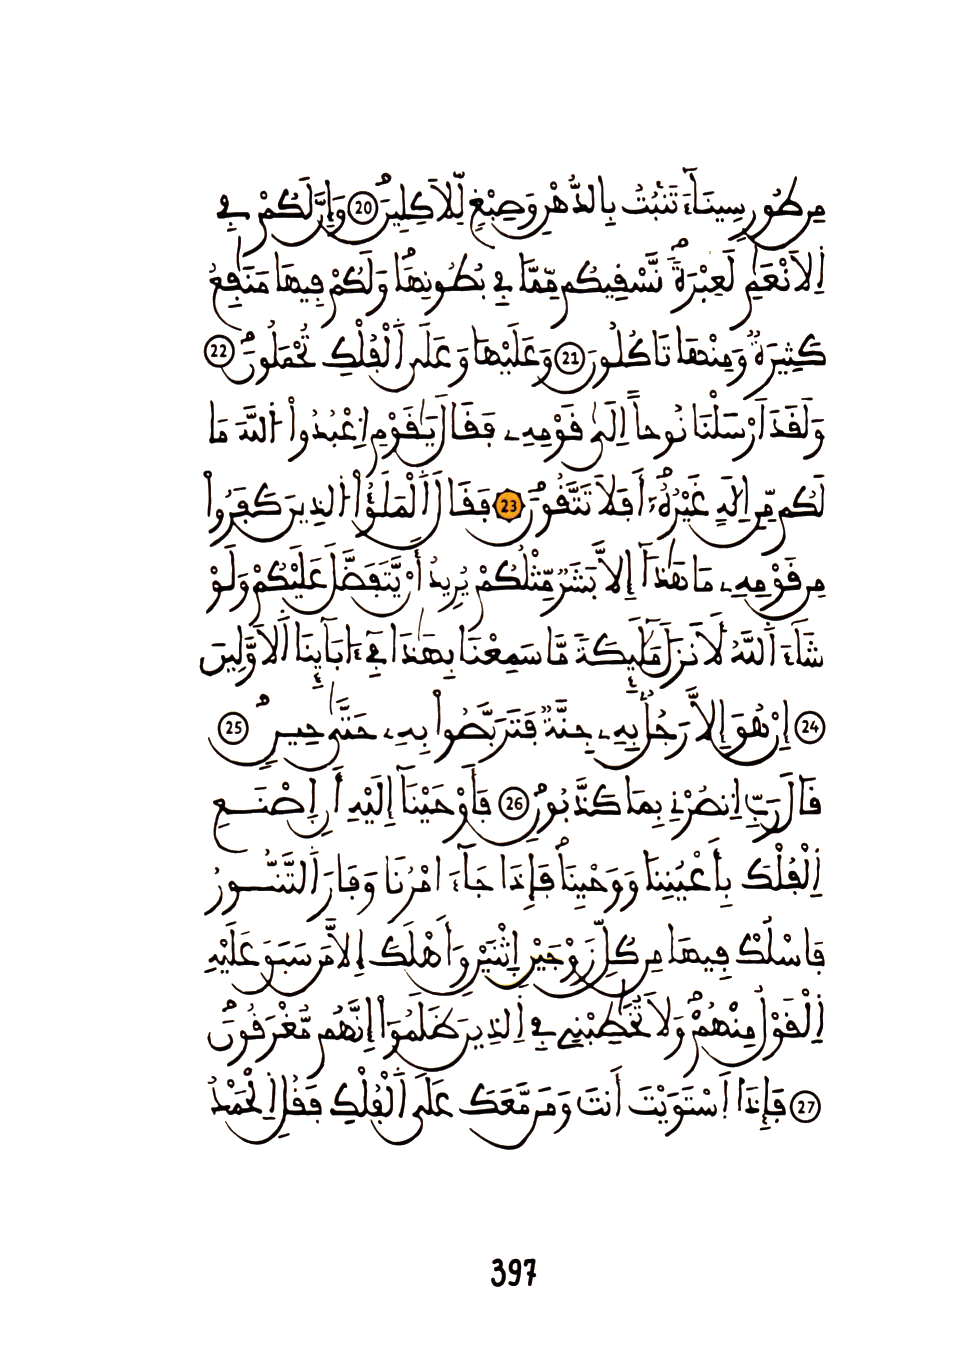 مِن طُورِ سِينَآءَ تَنۢبُتُ بِالدُّهْنِ وَصِبْغٍ لِّلَاكِلِينَۖ 20 وَإِنَّ لَكُمْ فِے
اِ۬لَانْعَٰمِ لَعِبْرَةٗۖ نَّسْقِيكُم مِّمَّا فِے بُطُونِهَاۖ وَلَكُمْ فِيهَا مَنَٰفِعُ
كَثِيرَةٞ وَمِنْهَا تَاكُلُونَ 21 وَعَلَيْهَا وَعَلَى اَ۬لْفُلْكِ تُحْمَلُونَۖ 22
وَلَقَدَ اَرْسَلْنَا نُوحاً اِلَىٰ قَوْمِهِۦ فَقَالَ يَٰقَوْمِ اِ۟عْبُدُواْ اُ۬للَّهَ مَا
لَكُم مِّنِ اِلَٰهٍ غَيْرُهُۥٓۖ أَفَلَا تَتَّقُونَۖ 23 فَقَالَ اَ۬لْمَلَؤُاْ اُ۬لذِينَ كَفَرُواْ
مِن قَوْمِهِۦ مَا هَٰذَآ إِلَّا بَشَرٞ مِّثْلُكُمْ يُرِيدُ أَنْ يَّتَفَضَّلَ عَلَيْكُمْ وَلَوْ
شَآءَ اَ۬للَّهُ لَأَنزَلَ مَلَٰٓئِكَةٗ مَّا سَمِعْنَا بِهَٰذَا فِےٓ ءَابَآئِنَا اَ۬لَاوَّلِينَ
24 إِنْ هُوَ إِلَّا رَجُلُۢ بِهِۦ جِنَّةٞ فَتَرَبَّصُواْ بِهِۦ حَتَّىٰ حِينٖۖ 25
قَالَ رَبِّ اِ۟نصُرْنِے بِمَا كَذَّبُونِۖ 26 فَأَوْحَيْنَآ إِلَيْهِ أَنِ اِ۪صْنَعِ
اِ۬لْفُلْكَ بِأَعْيُنِنَا وَوَحْيِنَاۖ فَإِذَا جَآءَ امْرُنَا وَفَارَ اَ۬لتَّنُّورُ
فَاسْلُكْ فِيهَا مِن كُلِّ زَوْجَيْنِ اِ۪ثْنَيْنِ وَأَهْلَكَ إِلَّا مَن سَبَقَ عَلَيْهِ
اِ۬لْقَوْلُ مِنْهُمْۖ وَلَا تُخَٰطِبْنِے فِے اِ۬لذِينَ ظَلَمُوٓاْ إِنَّهُم مُّغْرَقُونَۖ
27 فَإِذَا اَ۪سْتَوَيْتَ أَنتَ وَمَن مَّعَكَ عَلَى اَ۬لْفُلْكِ فَقُلِ اِ۬لْحَمْدُ
397